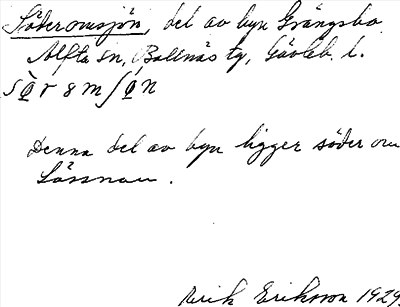 Söderomsjön, del av byn Grängsbo
Alfta sn, Bollnäs tg, Gävleb. l.
Denna del av byn ligger söder om
Lössnan.
Erik Eriksson 1929.